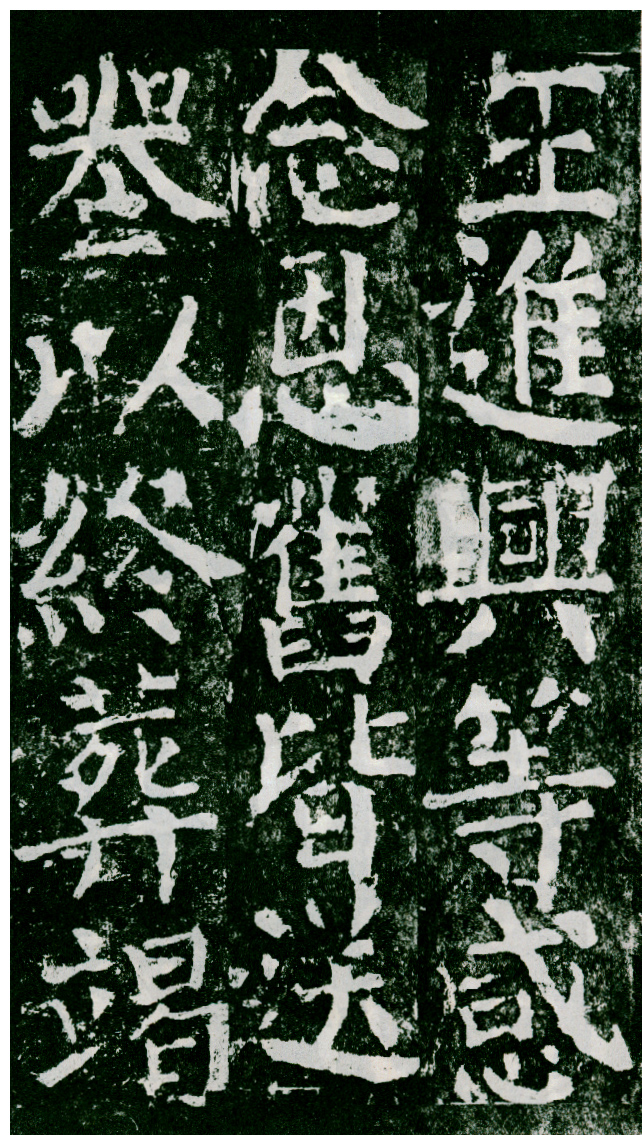 王進興等感
念恩舊皆送
喪以終葬竭